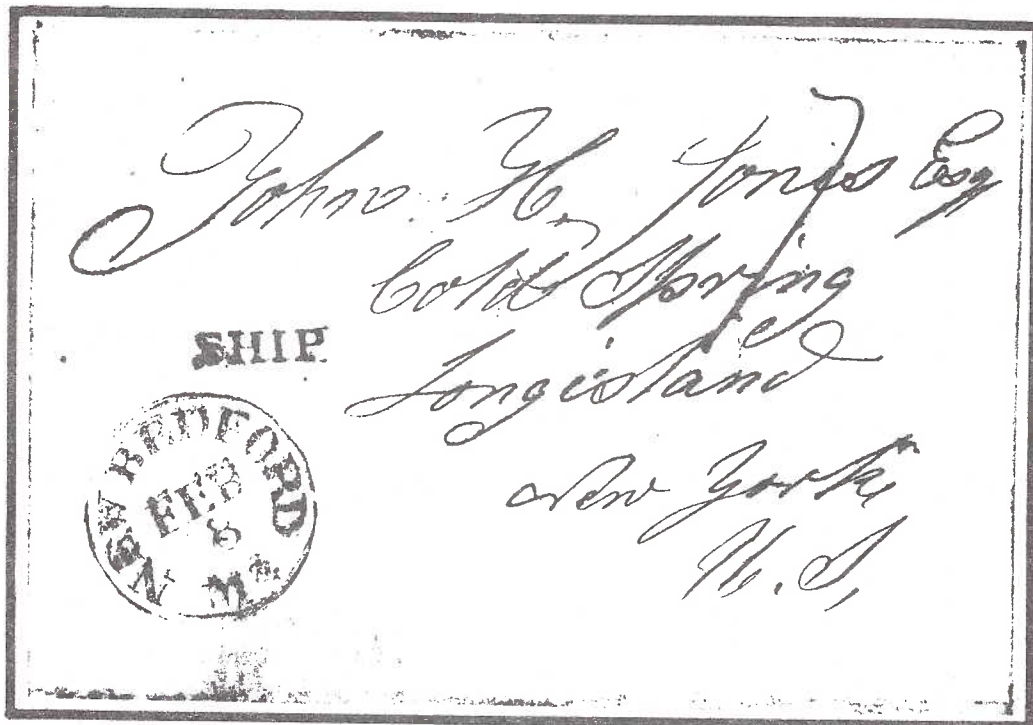 John H. Jones Esq
Cold Spring
Longisland
New York
U.S.
SHIP
NEW BEDFORD Ms.
FEB
8